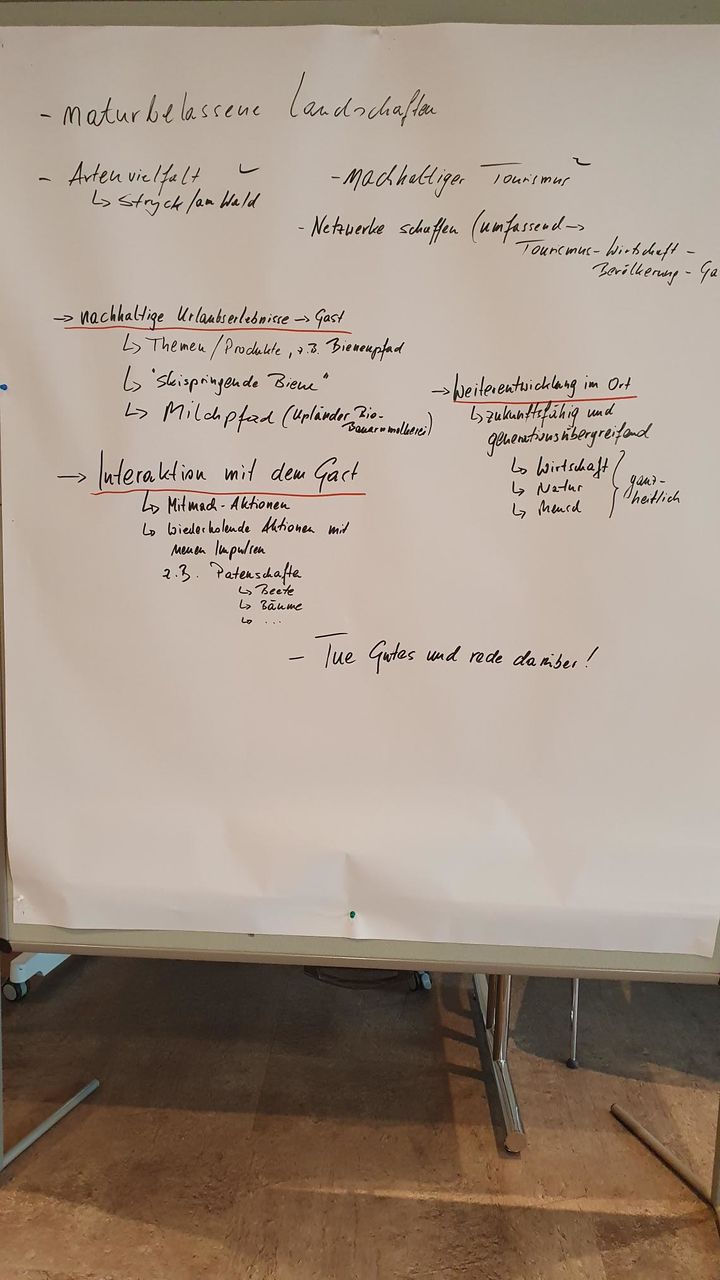 - naturbelassene Landschaften
- Artenvielfalt
↳ Stryck/am Wald
- nachhaltiger Tourismus
- Netzwerke schaffen (umfassend →
Tourismus - Wirtschaft -
Bevölkerung - Ga
→ nachhaltige Urlaubserlebnisse → Gast
↳ Themen/Produkte, z.B. Bienenpfad
↳ "skispringende Biene"
↳ Milchpfad (Upländer Bio-
Bauernmolkerei)
→ Interaktion mit dem Gast
↳ Mitmach-Aktionen
↳ wiederholende Aktionen mit
neuen Impulsen
z.B. Patenschafte
↳ Beete
↳ Bäume
↳ ...
→ Weiterentwicklung im Ort
↳ zukunftsfähig und
generationsübergreifend
↳ Wirtschaft
↳ Natur
↳ Mensch
} ganz-
heitlich
- Tue Gutes und rede darüber!